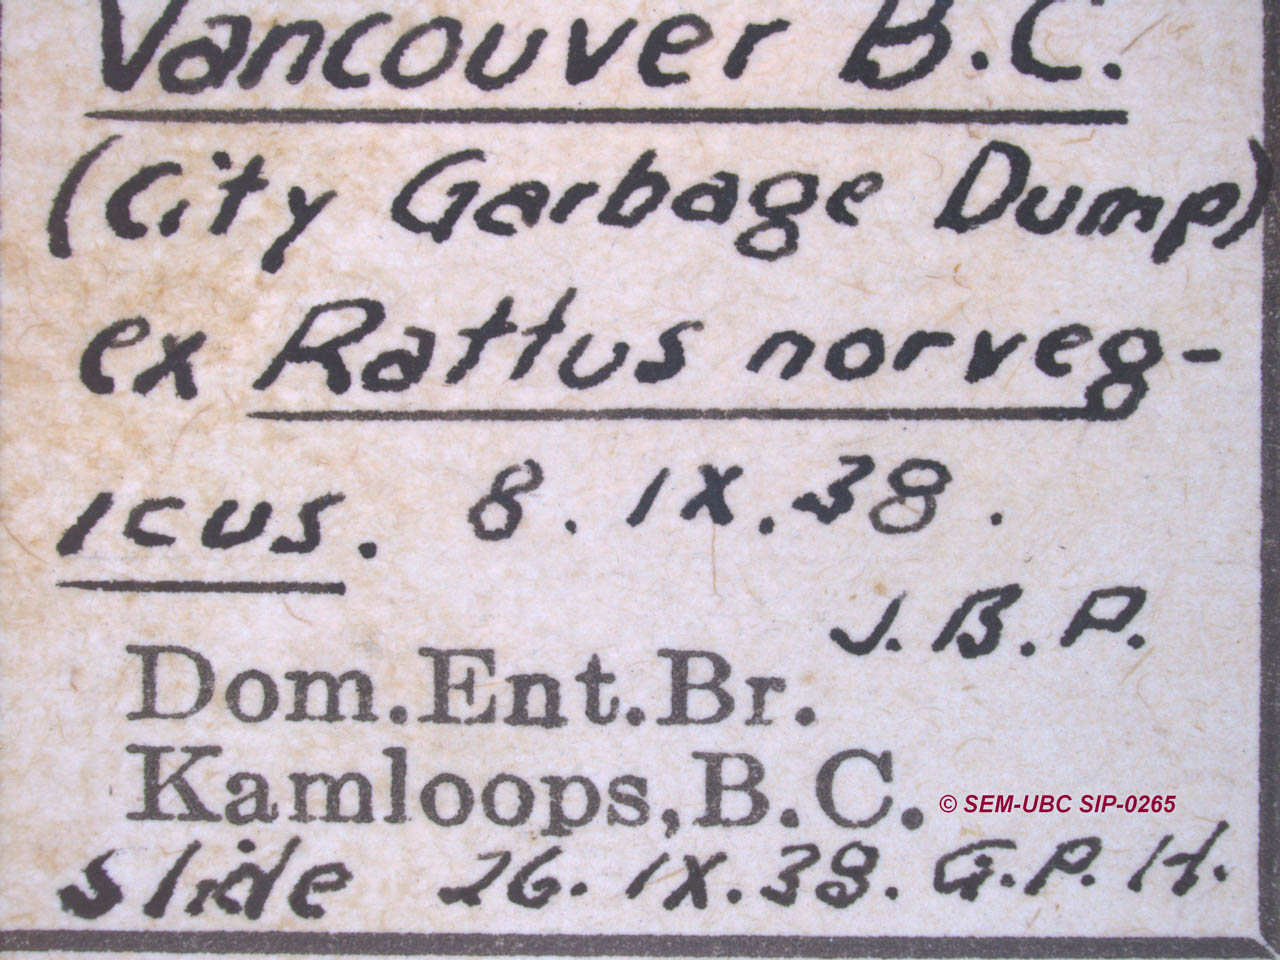 Vancouver B.C.
(City Garbage Dump)
ex Rattus norveg-
icus. 8.IX.38.
J.B.P.
Dom.Ent.Br.
Kamloops,B.C.
© SEM-UBC SIP-0265
slide 26.IX.38. G.P.H.